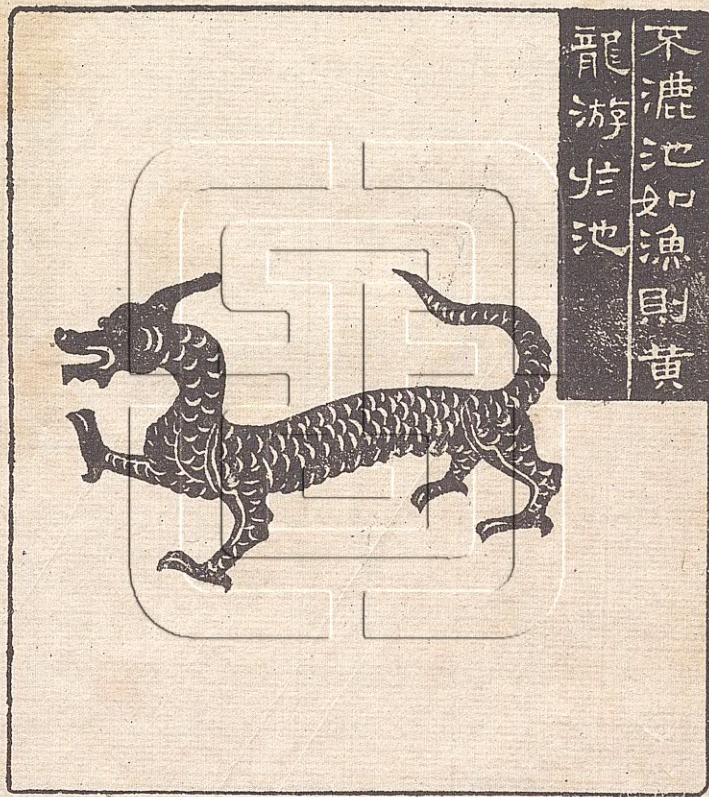 不漉池如漁則黄
龍游於池